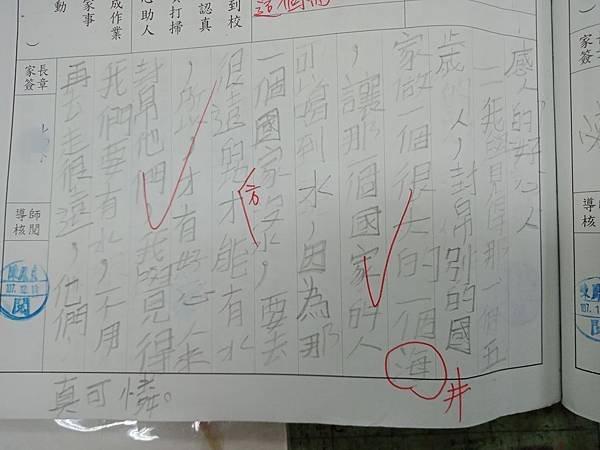 到校
認真
打掃
助人
成作業
家事
動
這個
感人的好心人
我覺得那一個五
歲的人，幫別的國
家做一個很大的一個海
井
，讓那個國家的人
可以喝到水，因為那
一個國家沒水，要去
很遠的 才能有水
方
，所以，才有好心人來
幫他們，我覺得
我們要有水，不用
再去走很遠，他們
真可憐。
家長簽章
導師核閱
閱